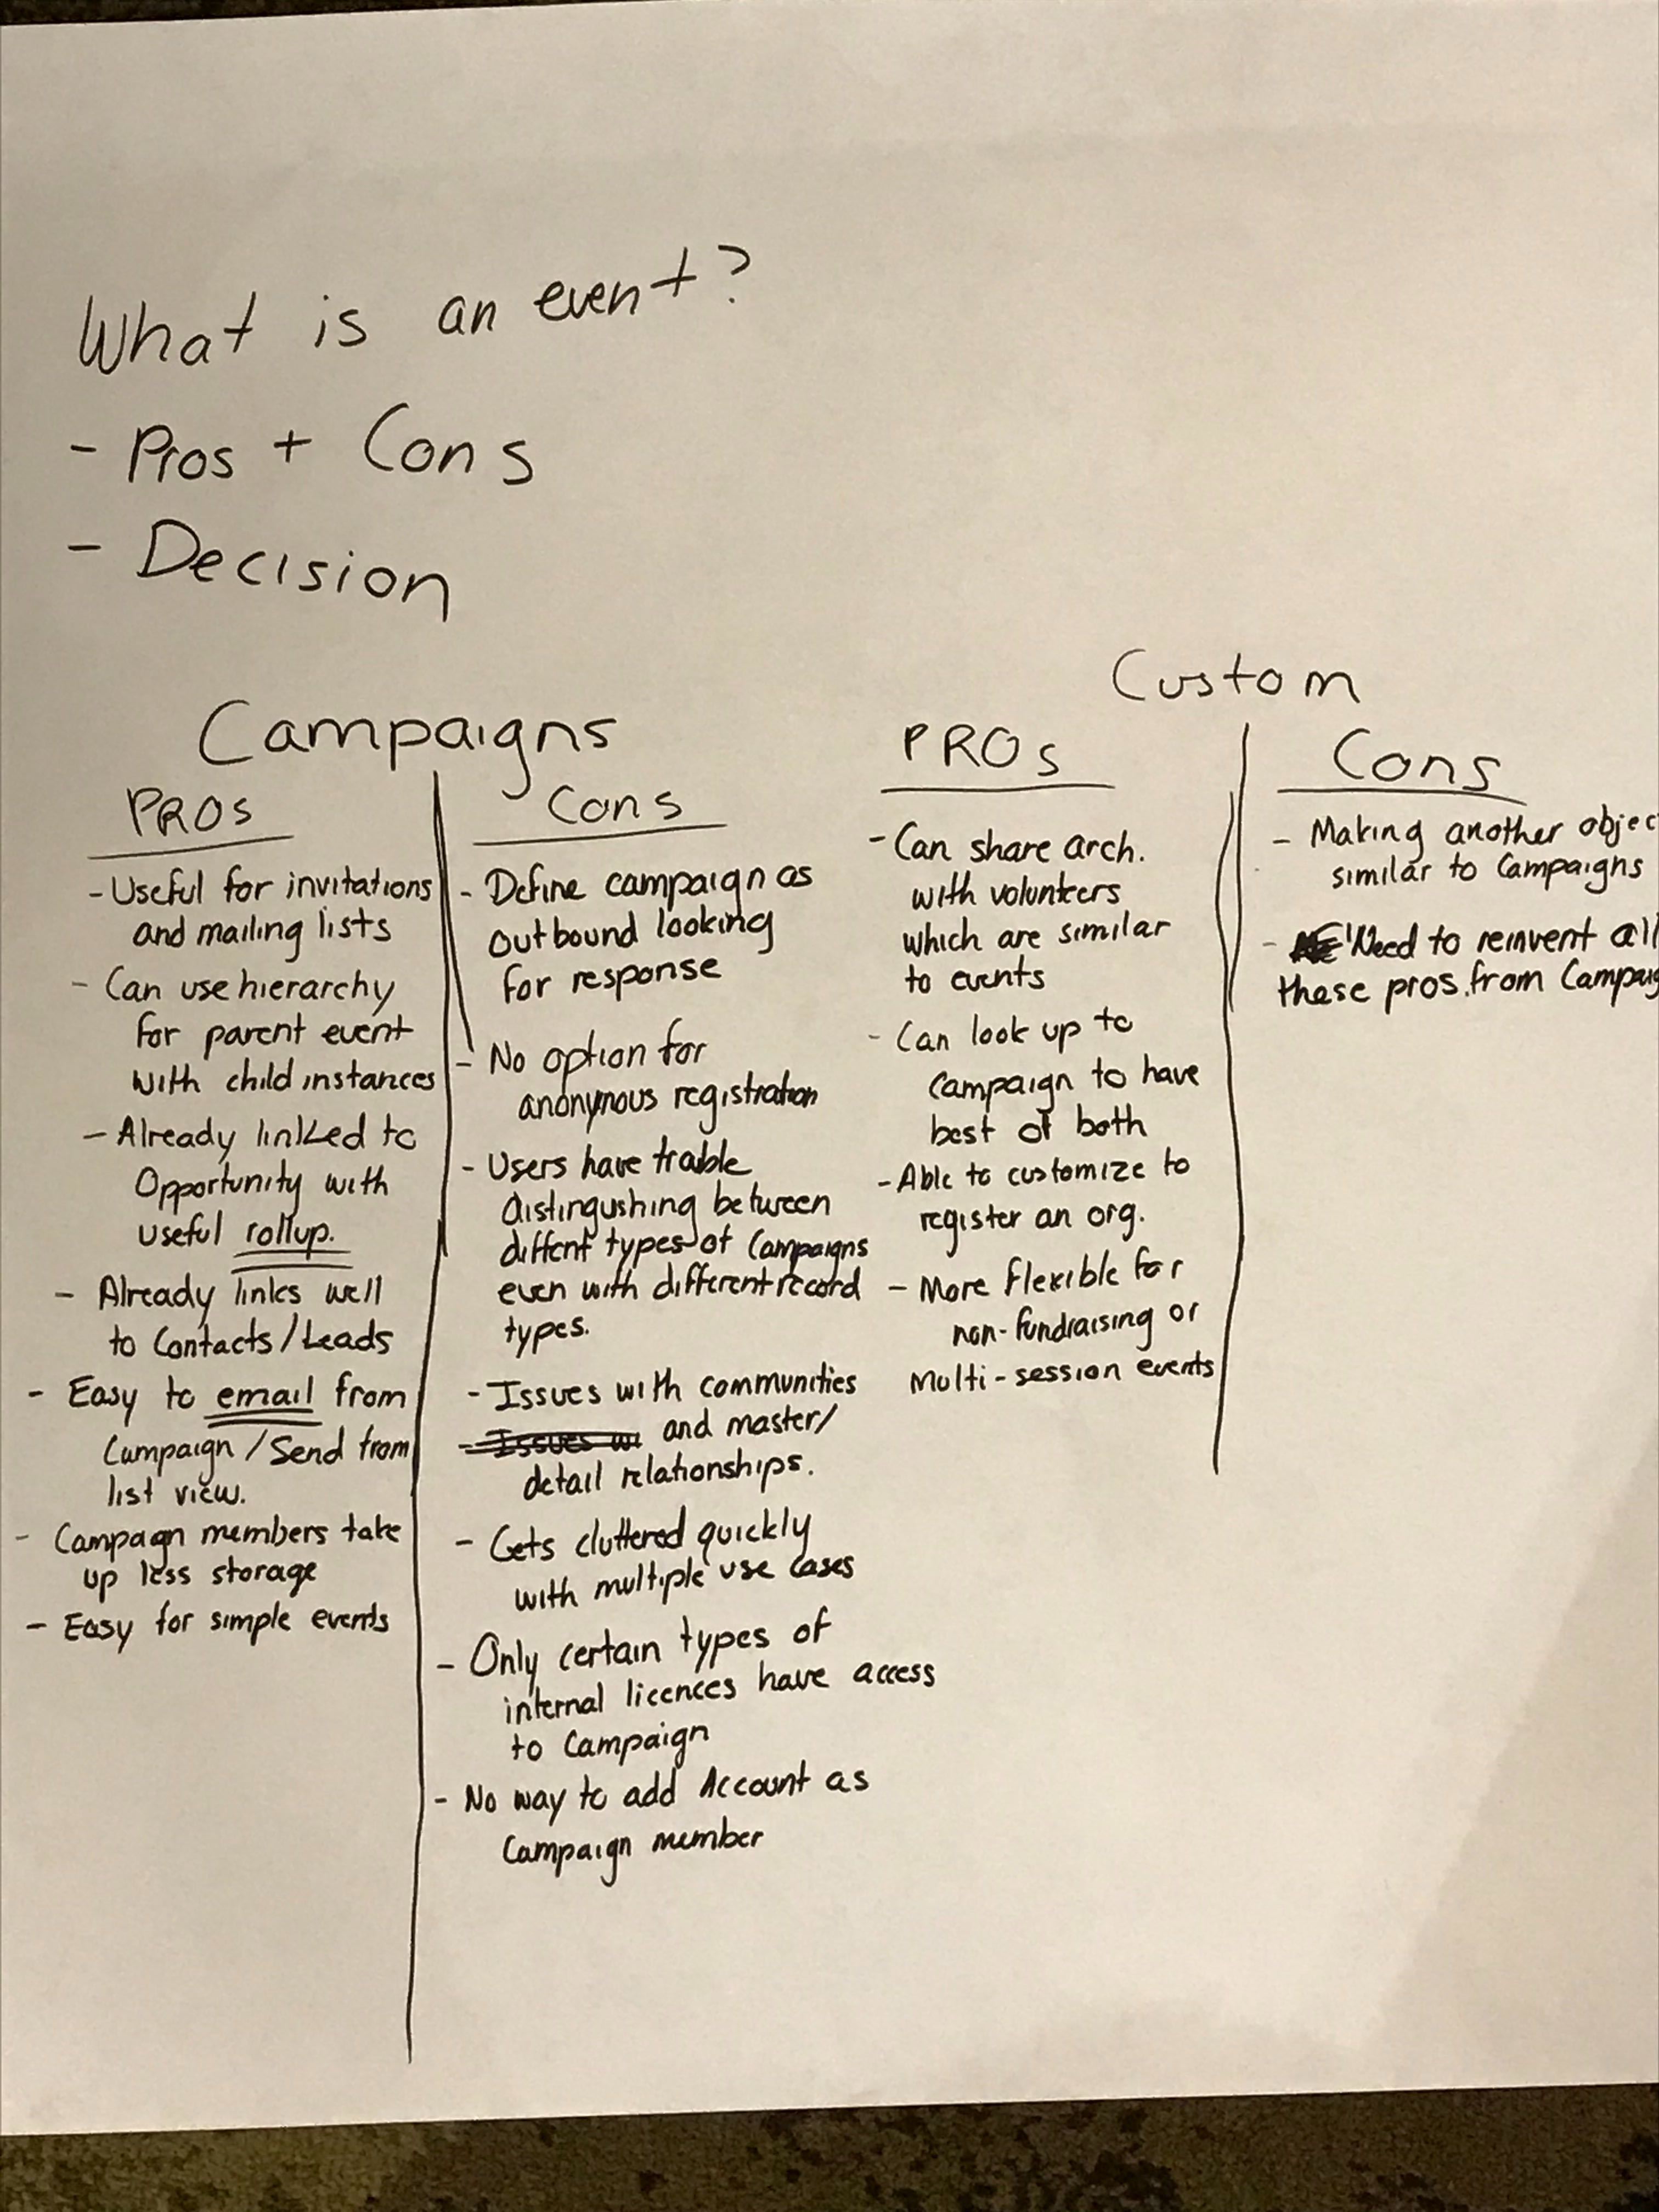 What is an event?
- Pros + Cons
- Decision
Campaigns
PROs
- Useful for invitations
and mailing lists
- Can use hierarchy
for parent event
with child instances
- Already linked to
Opportunity with
useful rollup.
- Already links well
to Contacts/Leads
- Easy to email from
Campaign/Send from
list view.
- Campaign members take
up less storage
- Easy for simple events
Cons
- Define campaign as
outbound looking
for response
- No option for
anonymous registration
- Users have trouble
distingushing between
diffent types of Campaigns
even with different record
types.
- Issues with communities
and master/
detail relationships.
- Gets cluttered quickly
with multiple use cases
- Only certain types of
internal licences have access
to Campaign
- No way to add Account as
Campaign member
Custom
PROs
- Can share arch.
with volunteers
which are similar
to events
- Can look up to
Campaign to have
best of both
- Able to customize to
register an org.
- More flexible for
non-fundraising or
Multi-session events
Cons
- Making another objec
similar to Campaigns
- Need to reinvent all
these pros from Campaig